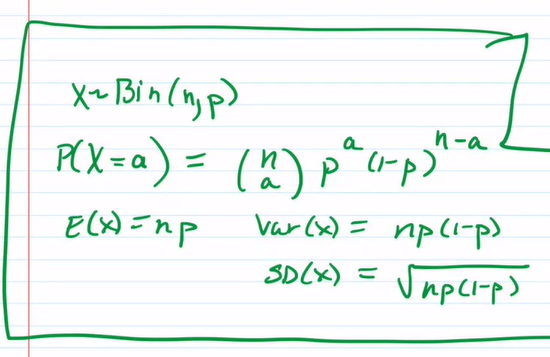 X~Bin(n,p)
P(X=a) = (n a) p^a (1-p)^n-a
E(x)=np var(x) = np(1-p)
SD(x) = √np(1-p)